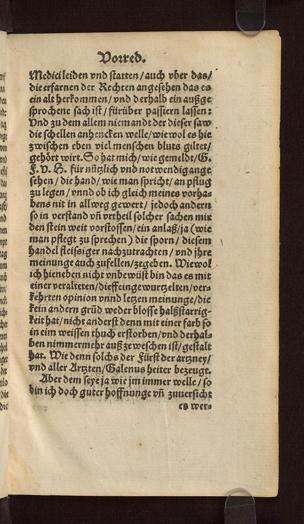 Vorred.
Medici leiden vnd statten/ auch vber das/
die erfarnen der Rechten angesehen das es
ein alt herkommen/ vnd derhalb ein außge
sprochene sach ist/ fürüber passiern lassen:
Vnd zu dem allem niemande der dieser saw
die schellen anhencken welle/ wie wol es hie
zwischen eben viel menschen bluts giltet/
gehört wirt. So hat mich/ wie gemeldt/ G.
F. V. H. für nützlich vnd notwendig ange
sehen/ die hand/ wie man spricht/ an pflug
zu legen/ vnnd ob ich gleich meines vorha
bens nit in allweg gewert/ jedoch andern
so in verstand vñ vrtheil solcher sachen mir
den stein weit vorstossen/ ein anlaß/ ja (wie
man pflegt zu sprechen) die sporn/ diesem
handel fleissiger nachzutrachten/ vnd jhre
meinunge auch zufellen/ zegeben. Wiewol
ich hieneben nicht vnbewüst bin das es mit
einer veralteten/ dieff eingewurtzelten/ ver-
kehrten opinion vnnd letzen meinunge/ die
kein andern grüd weder blosse halßstarrig-
keit hat/ nicht anderst denn mit einer farb so
in ein weissen thuch erstorben/ vnd derhal-
ben nimmermehr außzeweschen ist/ gestalt
hat. Wie denn solchs der Fürst der artzney/
vnd aller Artzten/ Galenus heiter bezeugt.
Aber dem seye ja wie jm immer welle/ so
bin ich doch guter hoffnunge vñ zuuersicht
es wer-